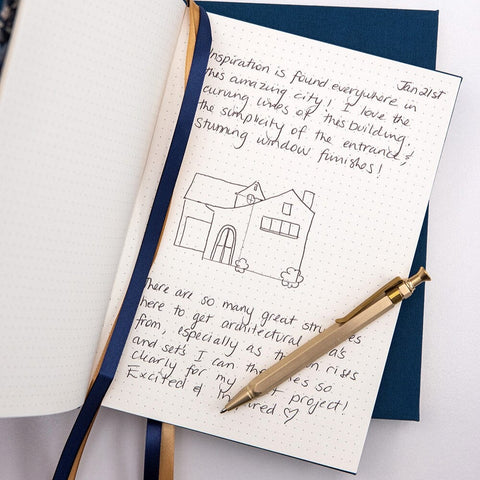 Jan 21st
Inspiration is found everywhere in
this amazing city! I love the
curving lines of this building,
the simplicity of the entrance, &
stunning window finishes!
There are so many great
here to get architectural
from, especially as
and sets I can so
clearly for my project!
Excited & ♡